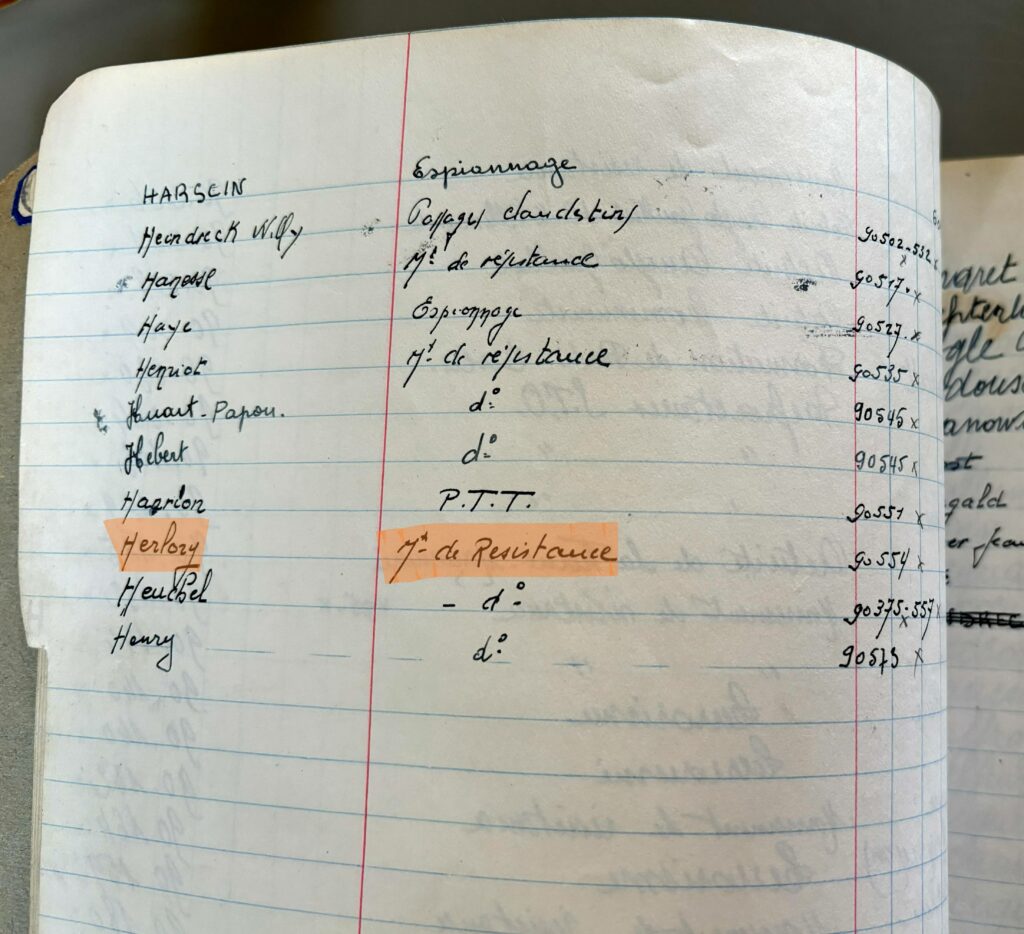 HARSEIN Espionnage
Heindreck Willy Passages clandestins 90502-532 x
Hanesse Mt de résistance 90517 x
Haye Espionnage 90527 x
Henriot Mt de résistance 90535 x
Huart-Papon. do 90545 x
Hebert do 90545 x
Haerlon P.T.T. 90551 x
Herlory Mt de Resistance 90554 x
Heuchel - do - 90375-557 x
Henry do 90573 x
gald